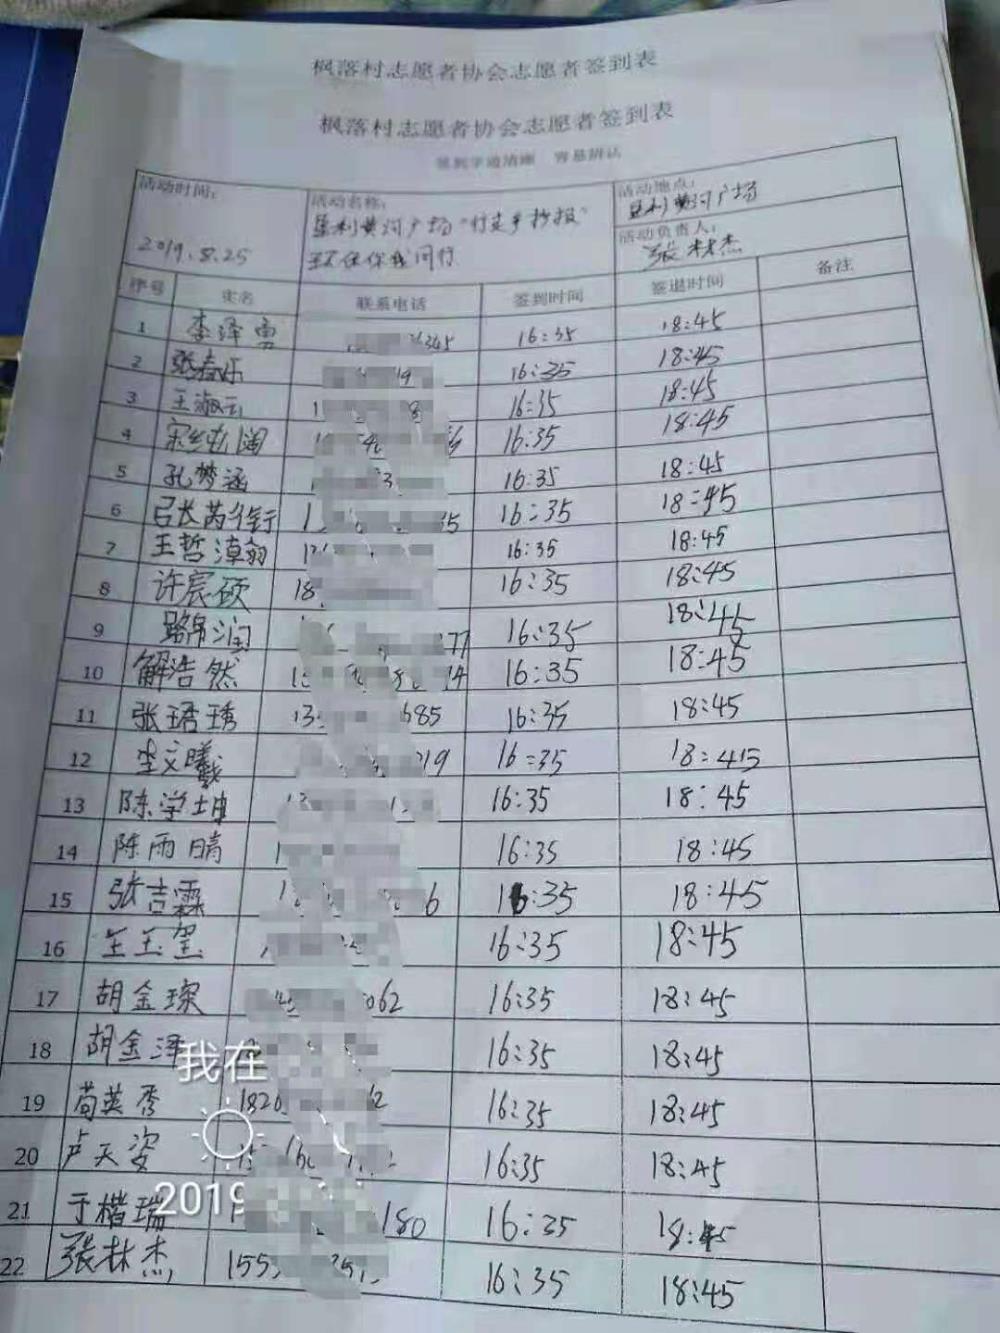 枫落村志愿者协会志愿者签到表
枫落村志愿者协会志愿者签到表
签到字迹清晰 容易辨认
活动时间：
2019.8.25
活动名称：
垦利黄河广场"行走手抄报"
环保你我同行
活动地点：
垦利黄河广场
活动负责人：
张林杰
序号 姓名 联系电话 签到时间 签退时间 备注
1 李泽勇 16:35 18:45
2 张春乐 16:35 18:45
3 王淑云 16:35 18:45
4 宋纯阔 16:35 18:45
5 孔梦涵 16:35 18:45
6 16:35 18:45
7 王哲 16:35 18:45
8 许宸硕 18 16:35 18:45
9 路锦润 77 16:35 18:45
10 解浩然 16:35 18:45
11 张珺琇 685 16:35 18:45
12 李文曦 219 16:35 18:45
13 陈学坤 16:35 18:45
14 陈雨晴 16:35 18:45
15 张吉霖 6 16:35 18:45
16 王玉玺 16:35 18:45
17 胡金琛 062 16:35 18:45
18 胡金泽 16:35 18:45
19 荀英秀 1820 16:35 18:45
20 卢天姿 16:35 18:45
21 于楷瑞 180 16:35 18:45
22 张林杰 155 16:35 18:45
我在
2019